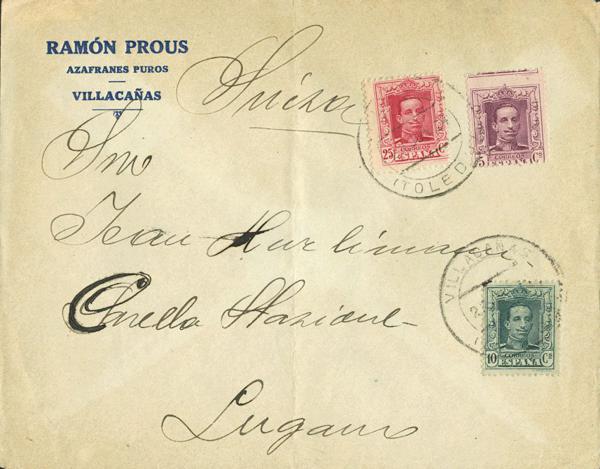 RAMÓN PROUS
AZAFRANES PUROS
VILLACAÑAS
Suiza
Snr
Jean Hurlimann
Casella Stazione
Lugano
25 Cs
CORREOS
ESPAÑA
5 Cs
CORREOS
ESPAÑA
(TOLEDO
VILLACAÑAS
10 Cs
CORREOS
ESPAÑA